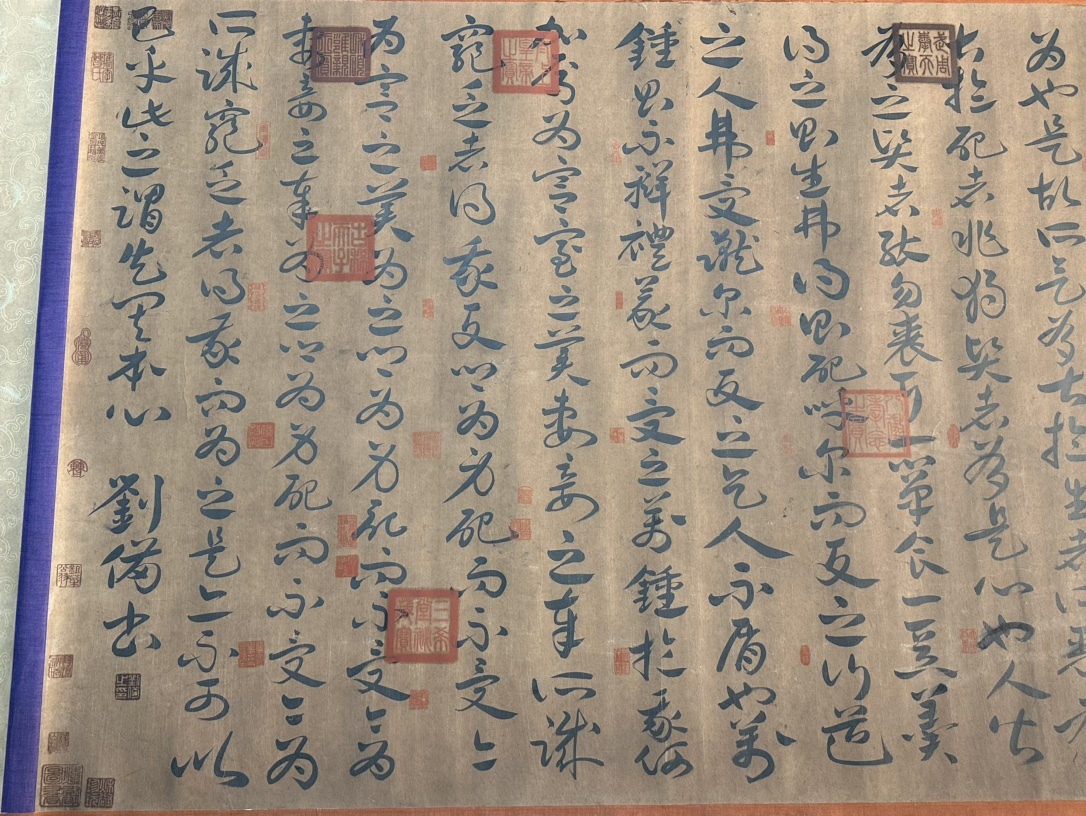 為也是故所欲有甚於生者所惡有
甚於死者非獨賢者有是心也人皆
有之賢者能勿喪耳一簞食一豆羹
得之則生弗得則死嘑爾而與之行道
之人弗受蹴爾而與之乞人不屑也萬
鍾則不辨禮義而受之萬鍾於我何
加焉為宮室之美妻妾之奉所識
窮乏者得我與鄉為身死而不受今
為宮室之美為之鄉為身死而不受今為
妻妾之奉為之鄉為身死而不受今為
所識窮乏者得我而為之是亦不可以
已乎此之謂失其本心 劉備書